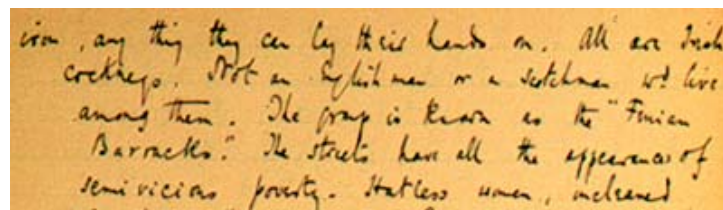 iron, any thing they can lay their hands on. All are Irish
cockneys. Not an Englishman or a Scotchman wd live
among them. The group is known as the "Fenian
Barracks." The streets have all the appearances of
semi vicious poverty. Hatless women, uncleaned